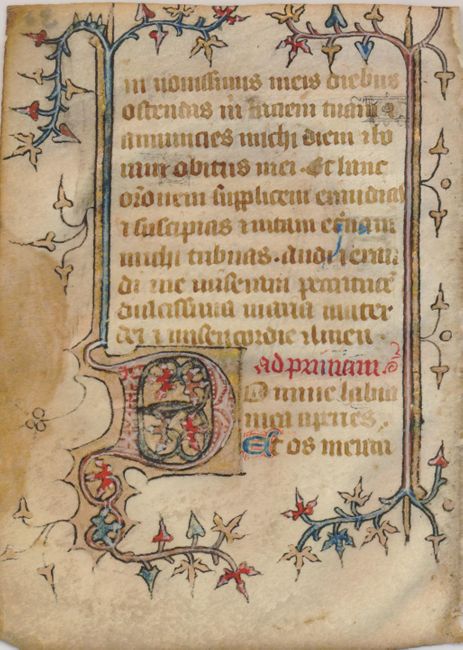 in novissimis meis diebus
ostendas m faciem tuam ⁊
annuncies michi diem ⁊ ho
ram obitus mei. Et hanc
oronem supplicem exaudias
⁊ suscipias ⁊ vitam eternam
michi tribuas. audi ⁊ exau
di me miserum peccatorē
dulcissima maria mater
dei ⁊ misericordie Amen.
ad primam
Domine labia
mea aperies.
Et os meum